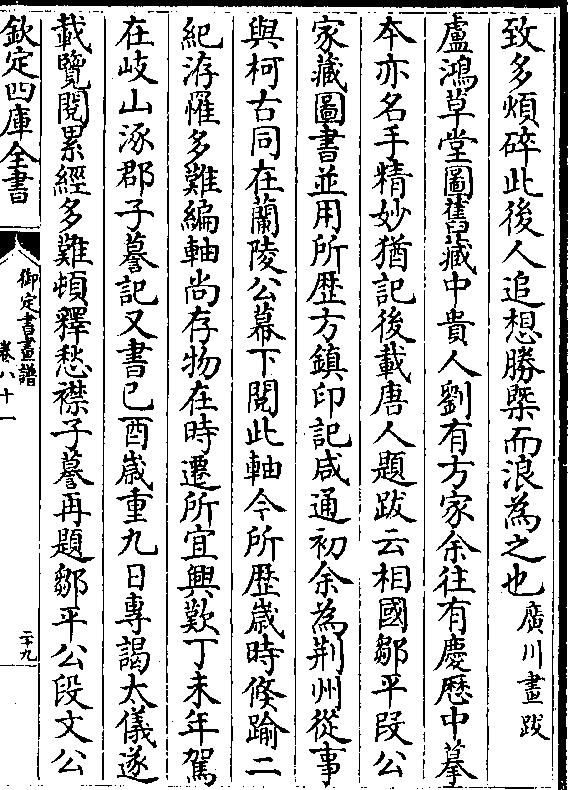 致多煩碎此後人追想勝槩而浪為之也廣川畫跋
盧鴻草堂圖舊藏中貴人劉有方家余往有慶厯中摹
本亦名手精妙猶記後載唐人題跋云相國鄒平段公
家藏圖書並用所歴方鎮印記咸通初余為荆州從事
與柯古同在蘭陵公幕下閱此軸今所歴嵗時倐踰二
紀洊罹多難編軸尚存物在時遷所宜興歎丁未年駕
在岐山涿郡子蕃記又書己酉嵗重九日専謁大儀遂
載覽閱累經多難頓釋愁襟子蕃再題鄒平公段文公
欽定四庫全書
御定書畫譜
卷八十一
二十九